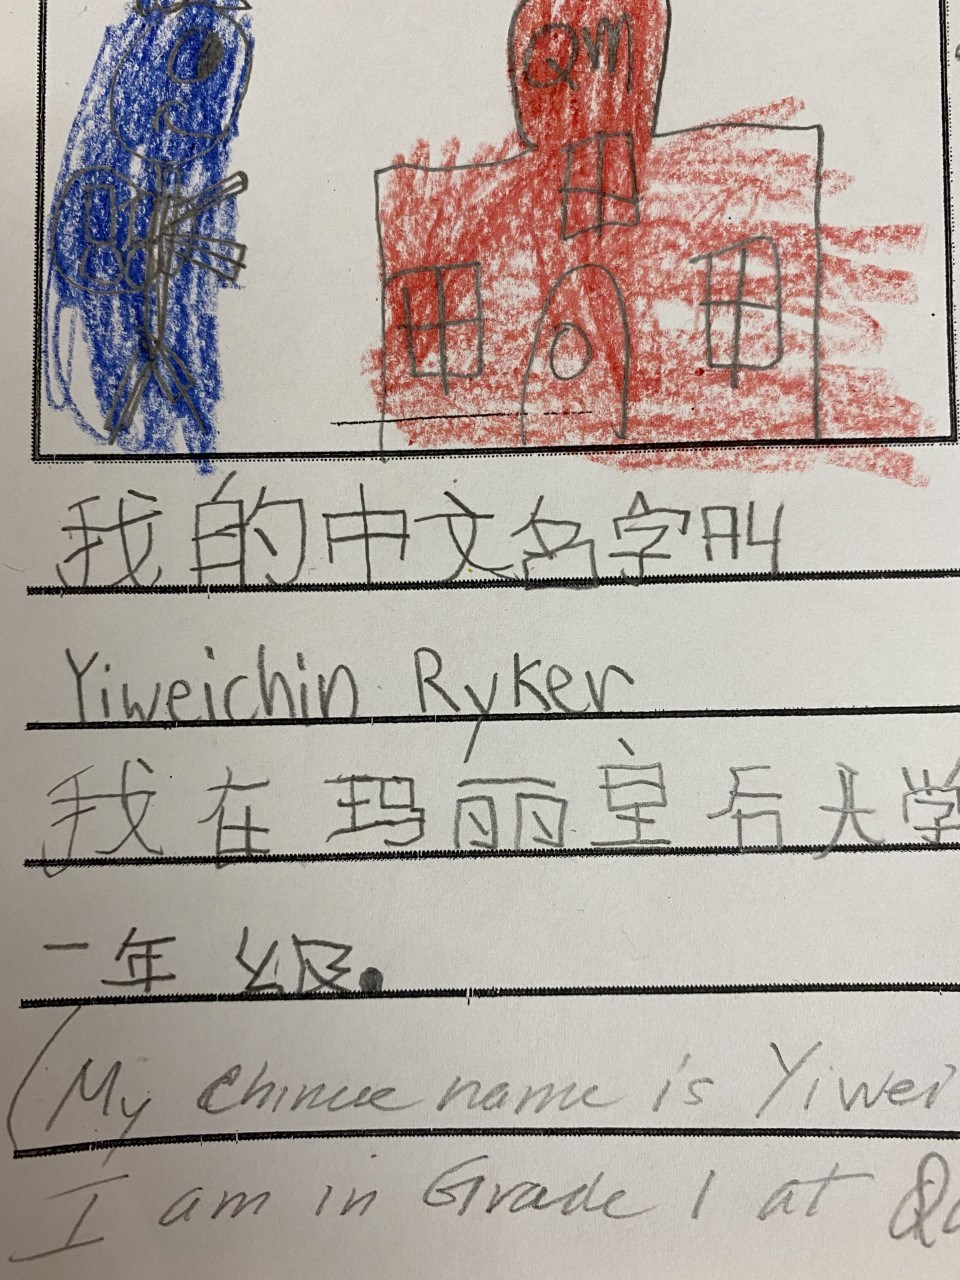 QM
我的中文名字叫
Yiweichin Ryker
我在玛丽皇后大学
一年级.
(My Chinese name is Yiwei
I am in Grade 1 at